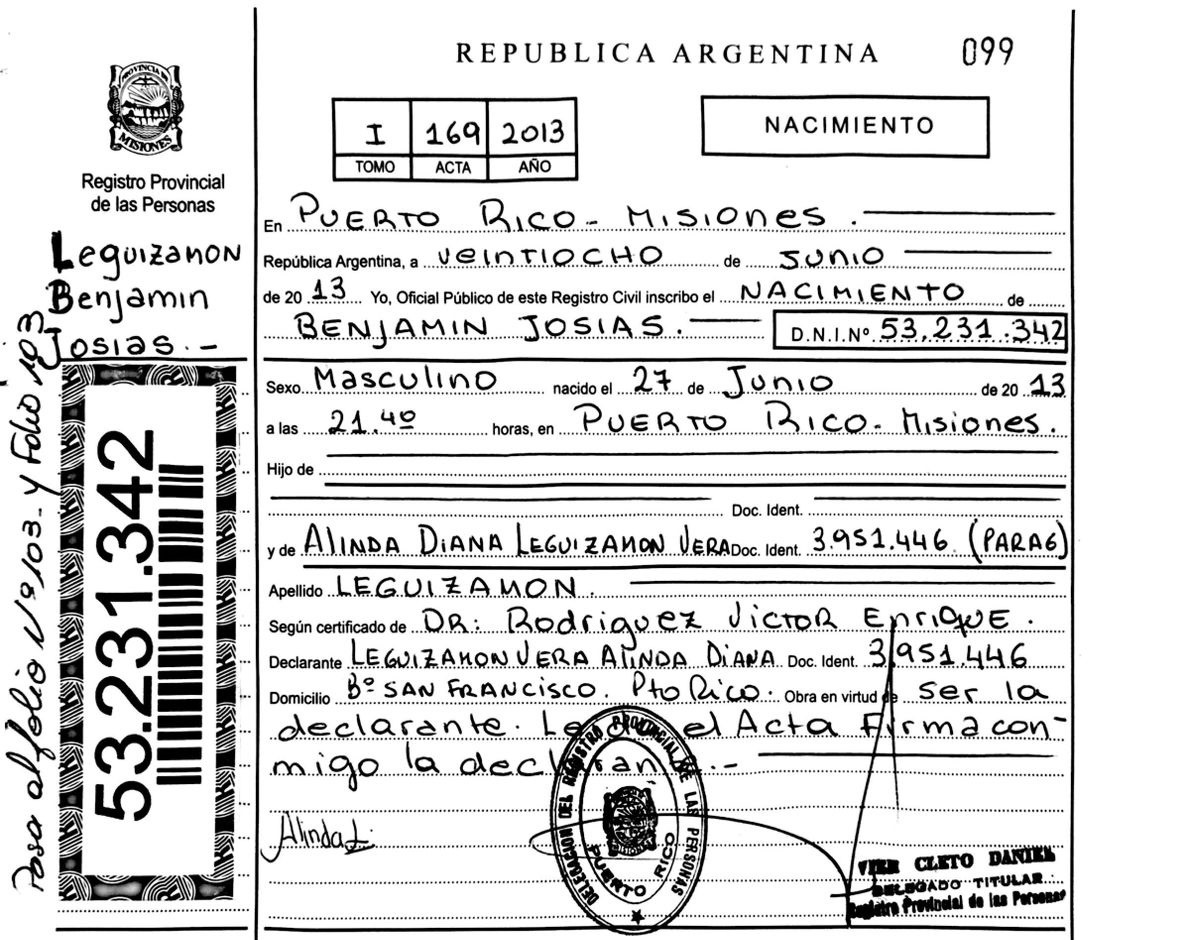 REPUBLICA ARGENTINA 099
PROVINCIA DE
MISIONES
Registro Provincial
de las Personas
Leguizamon
Benjamin
Josias.-
Pasa al folio Nº 103- y Folio 103
53.231.342
I 169 2013
TOMO ACTA AÑO
NACIMIENTO
En PUERTO RICO- MISIONES.
República Argentina, a VEINTIOCHO de JUNIO
de 20 13 Yo, Oficial Público de este Registro Civil inscribo el NACIMIENTO de
BENJAMIN JOSIAS. D.N.I.Nº 53.231.342
Sexo Masculino nacido el 27 de Junio de 20 13
a las 21.40 horas, en PUERTO RICO- Misiones.
Hijo de
Doc. Ident.
y de ALINDA DIANA LEGUIZAMON VERA Doc. Ident. 3.951.446. (PARAG)
Apellido LEGUIZAMON.
Según certificado de DR: Rodriguez Victor Enrique.
Declarante LEGUIZAMON VERA ALINDA DIANA Doc. Ident. 3.951.446
Domicilio Bº SAN FRANCISCO. Pto Rico. Obra en virtud de ser la
declarante. el Acta Firma con-
migo la
Alinda L.
DELEGACION DEL REGISTRO PROVINCIAL DE LAS PERSONAS
PUERTO RICO
CLETO DANIEL
DELEGADO TITULAR
Registro Provincial de las Personas